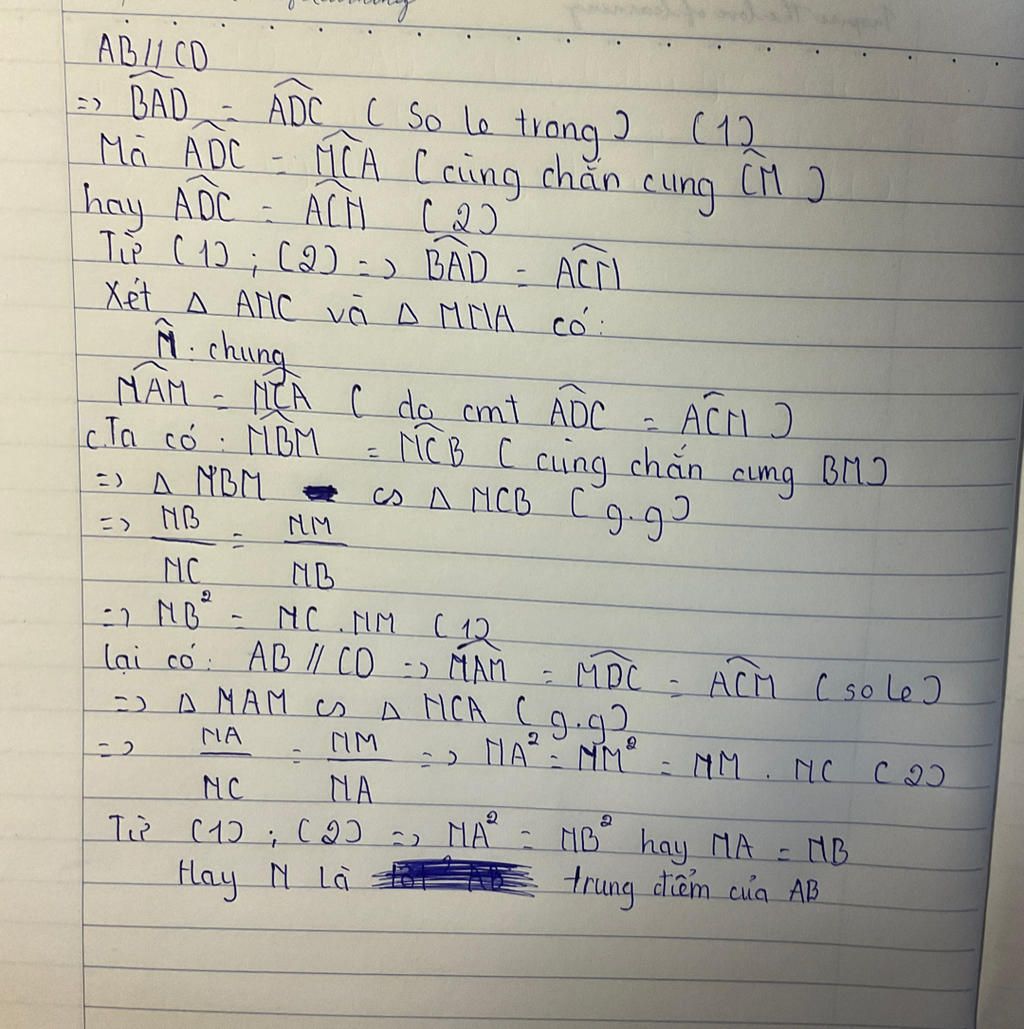 AB // CD
=> \widehat{BAD} = \widehat{ADC} ( So le trong ) (1)
Mà \widehat{ADC} = \widehat{MCA} ( cùng chắn cung \widehat{CM} )
hay \widehat{ADC} = \widehat{ACM} (2)
Từ (1) ; (2) => \widehat{BAD} = \widehat{ACM}
Xét Δ ANC và Δ MNA có:
\widehat{N} : chung
\widehat{NAM} = \widehat{NCA} ( do cmt \widehat{ADC} = \widehat{ACM} )
c. Ta có : \widehat{NBM} = \widehat{NCB} ( cùng chắn cung BM )
=> Δ NBM ∽ Δ NCB ( g.g )
=> NB/NC = NM/NB
=> NB² = NC . NM (1)
lại có: AB // CD => \widehat{NAM} = \widehat{MDC} = \widehat{ACM} ( so le )
=> Δ NAM ∽ Δ NCA ( g.g )
=> NA/NC = NM/NA => NA² = NM² = NM . NC (2)
Từ (1) ; (2) => NA² = NB² hay NA = NB
Hay N là trung điểm của AB